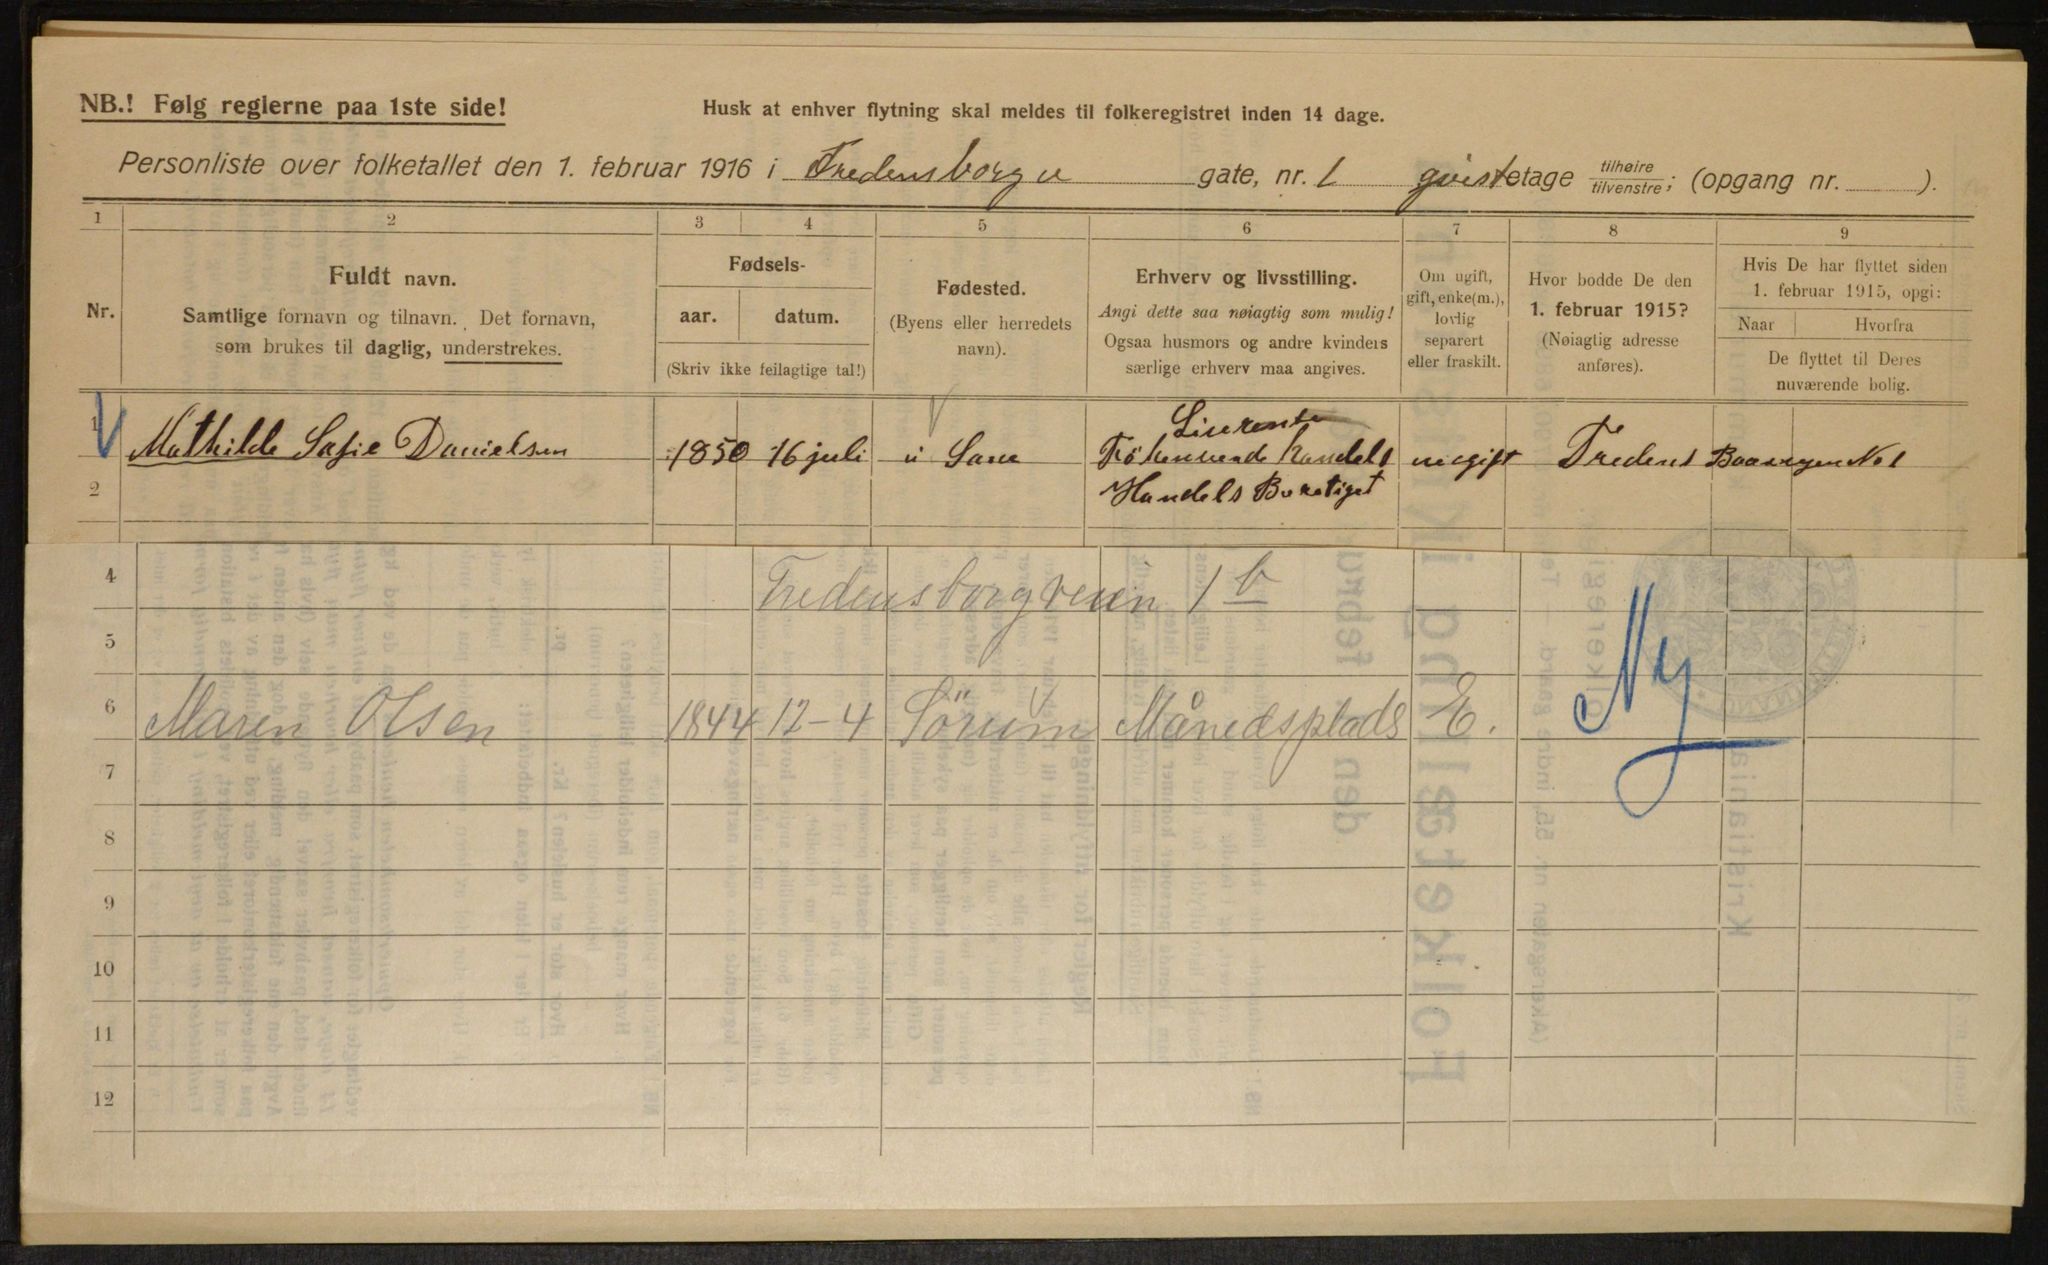 NB.! Følg reglerne paa 1ste side!
Husk at enhver flytning skal meldes til folkeregistret inden 14 dage.
Personliste over folketallet den 1. februar 1916 i Fredensborgv gate, nr. 1 qvist etage tilhøire/tilvenstre; (opgang nr. ).
1 2 3 4 5 6 7 8 9
Nr.
Fuldt navn.
Samtlige fornavn og tilnavn. Det fornavn,
som brukes til daglig, understrekes.
Fødsels-
aar. datum.
(Skriv ikke feilagtige tal!)
Fødested.
(Byens eller herredets
navn).
Erhverv og livsstilling.
Angi dette saa nøiagtig som mulig!
Ogsaa husmors og andre kvinders
særlige erhverv maa angives.
Om ugift,
gift, enke(m.),
lovlig
separert
eller fraskilt.
Hvor bodde De den
1. februar 1915?
(Nøiagtig adresse
anføres).
Hvis De har flyttet siden
1. februar 1915, opgi:
Naar Hvorfra
De flyttet til Deres
nuværende bolig.
1 Mathilde Safie Danielsen 1850 16 juli i
2 Handels
4 Fredensborgveien 1 b
5
6 Maren Olsen 1844 12-4 Sörum Månedsplads E. Ny
7
8
9
10
11
12